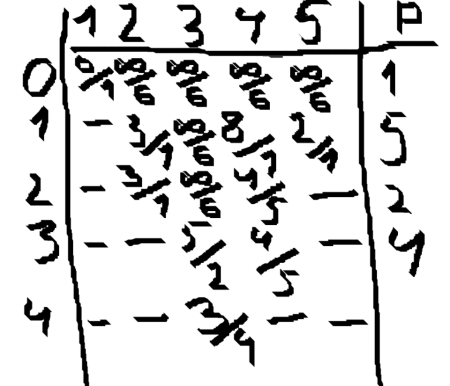 1 2 3 4 5 P
0 0/1 ∞/6 ∞/6 ∞/6 ∞/6 1
1 - 3/1 ∞/6 8/1 2/1 5
2 - 3/1 ∞/6 4/5 - 2
3 - - 5/2 4/5 - 4
4 - - 3/4 - -